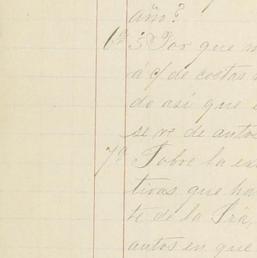 año?
6ª ¿Por que n
á c/ de costas n
do así que
se vé de autos
7ª Sobre la ex
tivas que ha
te de la Srá,
autos en que